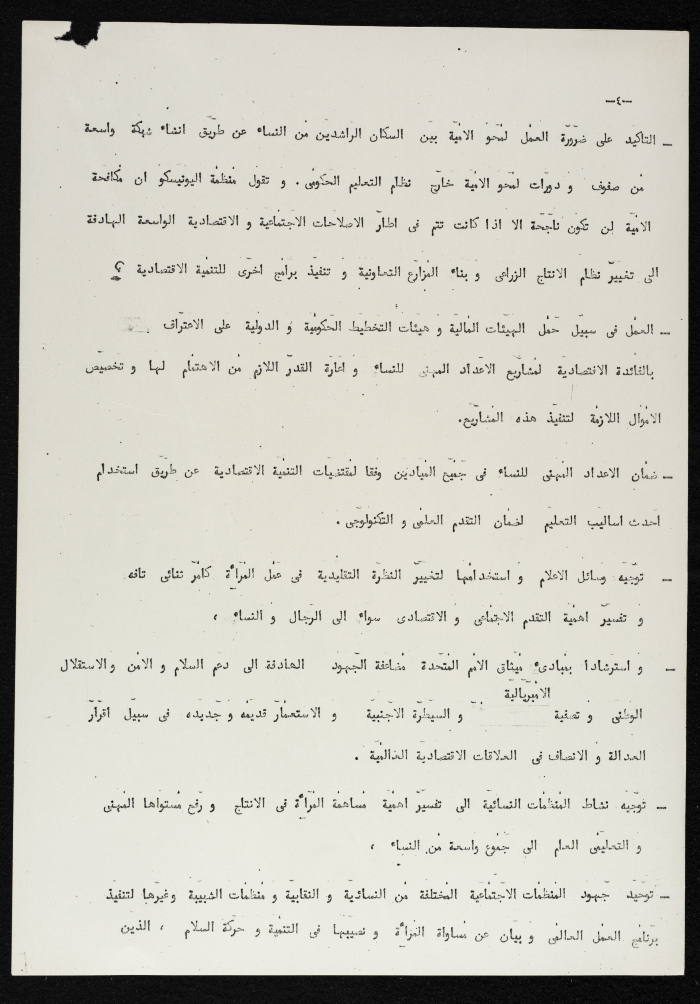 -٤-
– التاكيد على ضرورة العمل لمحو الامية بين السكان الراشدين من النساء عن طريق انشاء شبكة واسعة
من صفوف و دورات لمحو الامية خارج نظام التعليم الحكومي . و تقول منظمة اليونيسكو ان مكافحة
الامية لن تكون ناجحة الا اذا كانت تتم في اطار الاصلاحات الاجتماعية و الاقتصادية الواسعة الهادفة
الى تغيير نظام الانتاج الزراعي و بناء المزارع التعاونية و تنفيذ برامج اخرى للتنمية الاقتصادية ؟
– العمل في سبيل حمل الهيئات المالية و هيئات التخطيط الحكومية و الدولية على الاعتراف
بالفائدة الاقتصادية لمشاريع الاعداد المهني للنساء و اعارة القدر اللازم من الاهتمام لها و تخصيص
الاموال اللازمة لتنفيذ هذه المشاريع.
– ضمان الاعداد المهني للنساء في جميع الميادين وفقا لمقتضيات التنمية الاقتصادية عن طريق استخدام
احدث اساليب التعليم لضمان التقدم العلمي و التكنولوجي .
– توجيه وسائل الاعلام و استخدامها لتغيير النظرة التقليدية في عمل المرأة كامر ثنائي تافه
و تفسير اهمية التقدم الاجتماعي و الاقتصادى سواء الى الرجال و النساء ،
– و استرشادا بمبادىء ميثاق الامم المتحدة مضاعفة الجهود الهادفة الى دعم السلام و الامن والاستقلال
الوطني و تصفية الامبريالية و السيطرة الاجنبية و الاستعمار قديمه و جديده في سبيل اقرار
العدالة و الانصاف في العلاقات الاقتصادية العالمية .
– توجيه نشاط المنظمات النسائية الى تفسير اهمية مساهمة المرأة في الانتاج و رفع مستواها المهني
و التعليمي العام الى جموع واسعة من النساء ،
– توحيد جهود المنظمات الاجتماعية المختلفة من النسائية و النقابية و منظمات الشبيبة وغيرها لتنفيذ
برنامج العمل العالمي و بيان عن مساواة المرأة و نصيبها في التنمية و حركة السلام ، الذين